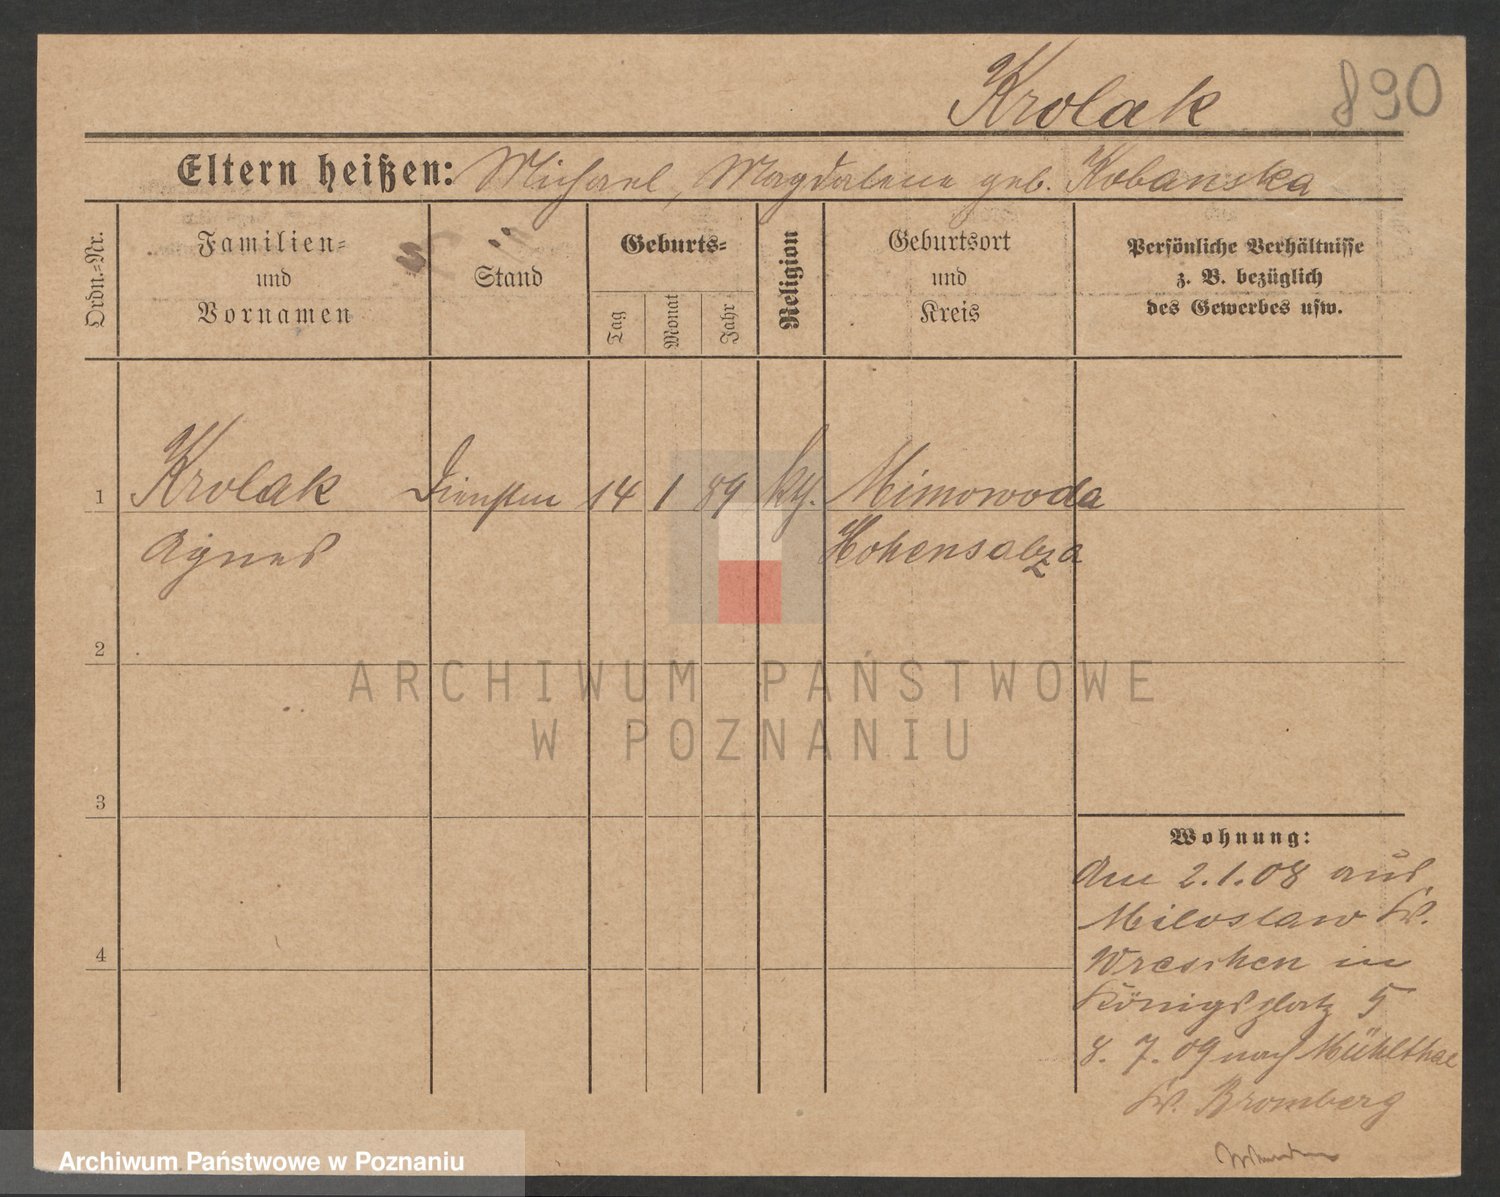 Krolak 890
Eltern heißen: Michael, Magdalene geb. Kobanska
Ordn.-Nr.
Familien-
und
Vornamen
Stand
Geburts-
Tag
Monat
Jahr
Religion
Geburtsort
und
Kreis
Persönliche Verhältnisse
z. B. bezüglich
des Gewerbes usw.
1 Krolak 14 1 89 kth. Mimowoda
Agnes Hohensalza
2
3
4
Wohnung:
Am 2.1.08 aus
Miloslaw Kr.
Wreschen in
Königsplatz 5
8. 7. 09 nach Mühlthal
Kr. Bromberg
ARCHIWUM PAŃSTWOWE
W POZNANIU
Archiwum Państwowe w Poznaniu